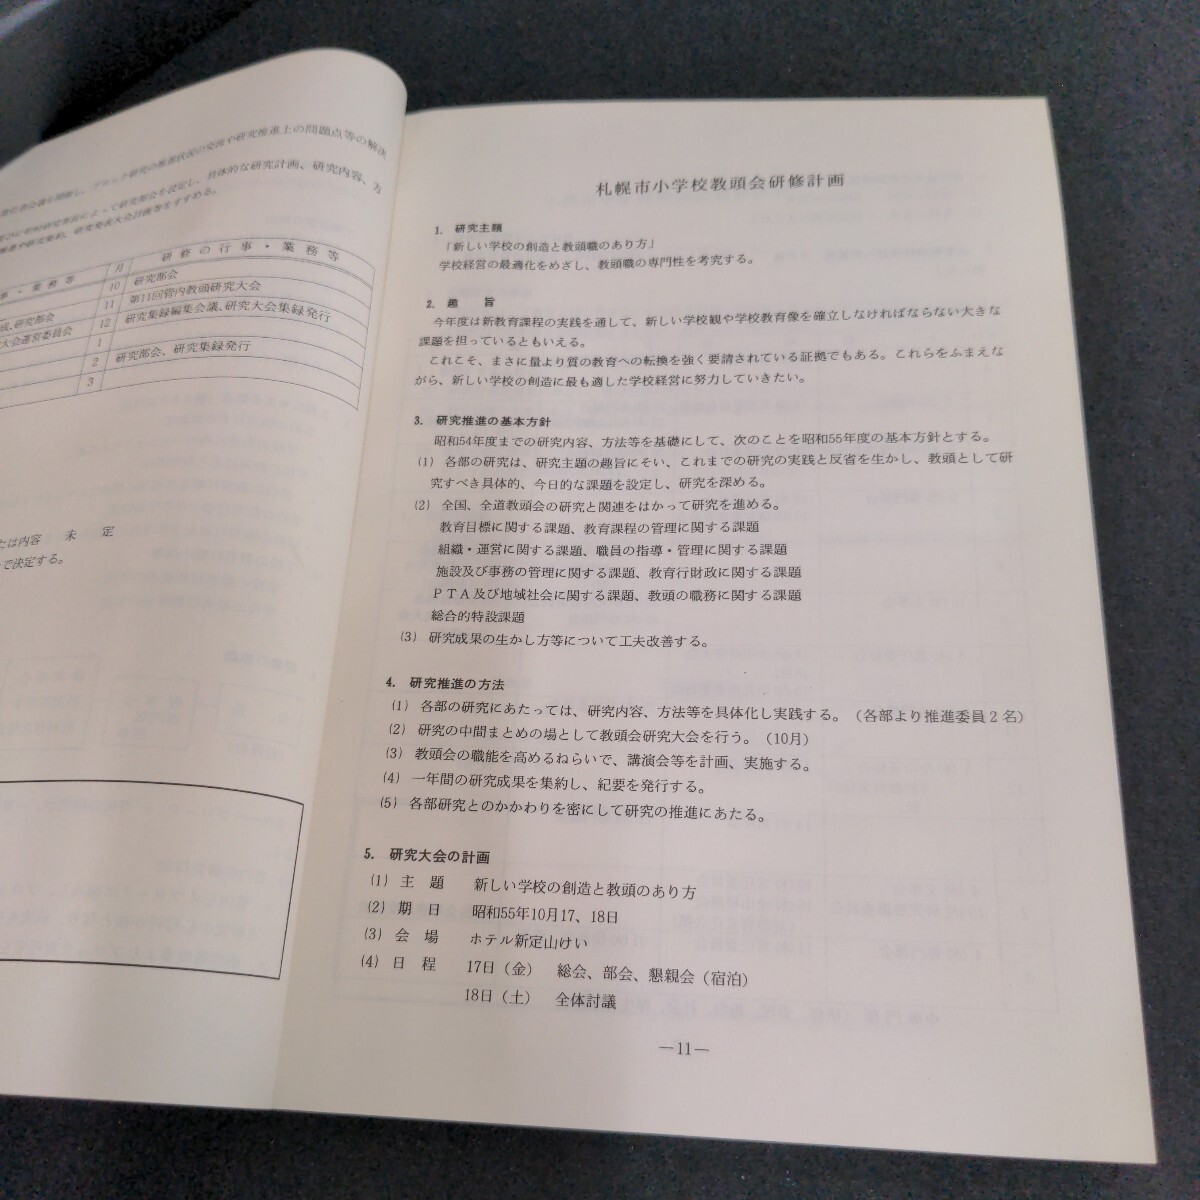 研究推進上の問題点等の解決
具体的な研究計画、研究内容、方
研究発表大会計画等をすすめる。
業務等
月
研修の行事・業務等
10
研究部会
11
第11回管内教頭研究大会
研究部会
12
研究集録編集会議、研究大会集録発行
大会運営委員会
1
2
研究部会、研究集録発行
3
内容 未 定
で決定する。
札幌市小学校教頭会研修計画
1. 研究主題
「新しい学校の創造と教頭職のあり方」
学校経営の最適化をめざし、教頭職の専門性を考究する。
2. 趣 旨
今年度は新教育課程の実践を通して、新しい学校観や学校教育像を確立しなければならない大きな
課題を担っているともいえる。
これこそ、まさに量より質の教育への転換を強く要請されている証拠でもある。これらをふまえな
がら、新しい学校の創造に最も適した学校経営に努力していきたい。
3. 研究推進の基本方針
昭和54年度までの研究内容、方法等を基礎にして、次のことを昭和55年度の基本方針とする。
(1) 各部の研究は、研究主題の趣旨にそい、これまでの研究の実践と反省を生かし、教頭として研
究すべき具体的、今日的な課題を設定し、研究を深める。
(2) 全国、全道教頭会の研究と関連をはかって研究を進める。
教育目標に関する課題、教育課程の管理に関する課題
組織・運営に関する課題、職員の指導・管理に関する課題
施設及び事務の管理に関する課題、教育行財政に関する課題
ＰＴＡ及び地域社会に関する課題、教頭の職務に関する課題
総合的特設課題
(3) 研究成果の生かし方等について工夫改善する。
4. 研究推進の方法
(1) 各部の研究にあたっては、研究内容、方法等を具体化し実践する。（各部より推進委員２名）
(2) 研究の中間まとめの場として教頭会研究大会を行う。（10月）
(3) 教頭会の職能を高めるねらいで、講演会等を計画、実施する。
(4) 一年間の研究成果を集約し、紀要を発行する。
(5) 各部研究とのかかわりを密にして研究の推進にあたる。
5. 研究大会の計画
(1) 主 題 新しい学校の創造と教頭のあり方
(2) 期 日 昭和55年10月17、18日
(3) 会 場 ホテル新定山けい
(4) 日 程 17日（金） 総会、部会、懇親会（宿泊）
18日（土） 全体討議
—11—